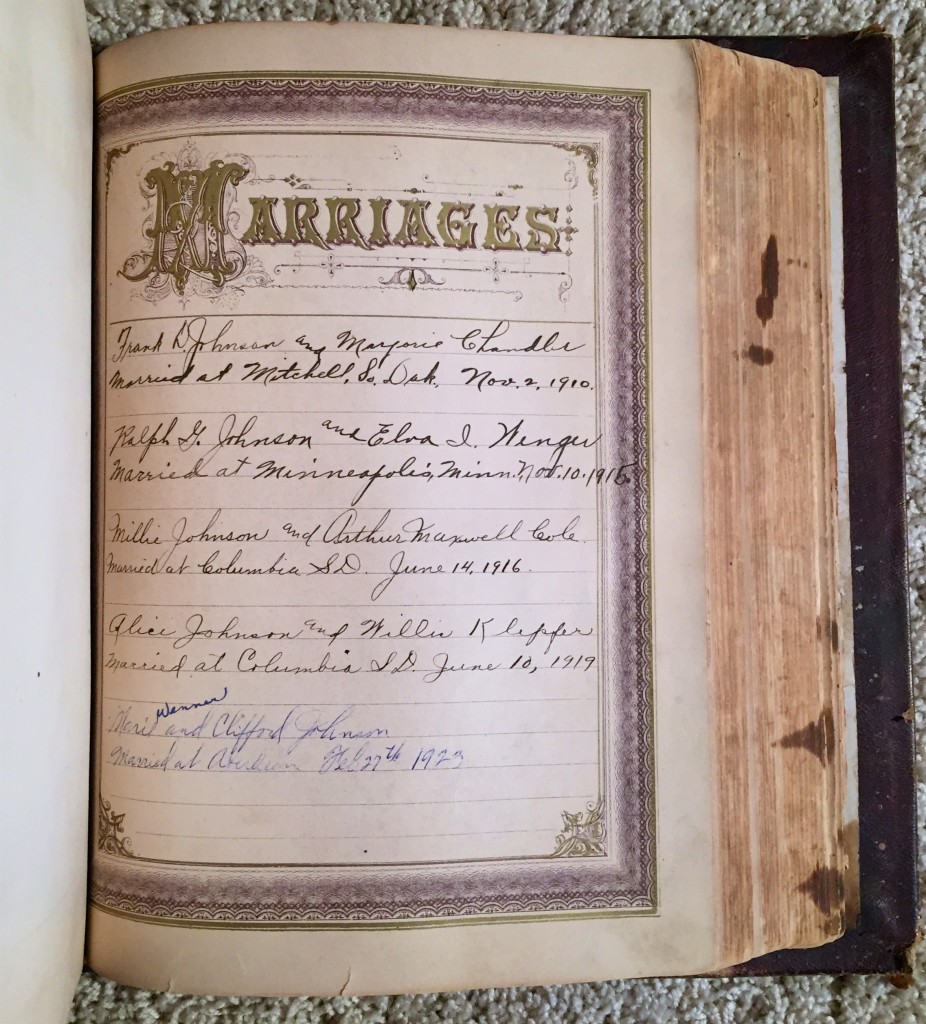 MARRIAGES
Frank D. Johnson and Marjorie Chandler
Married at Mitchell, So. Dak. Nov. 2, 1910.
Ralph G. Johnson and Elva I. Wenger
Married at Minneapolis, Minn., Nov. 10. 1915.
Millie Johnson and Arthur Maxwell Cole.
Married at Columbia S.D. June 14, 1916.
Alice Johnson and Willis Klepfer
Married at Columbia S.D. June 10, 1919
Wanner
Marie and Clifford Johnson
Married at Aberdeen Feb 27th 1923